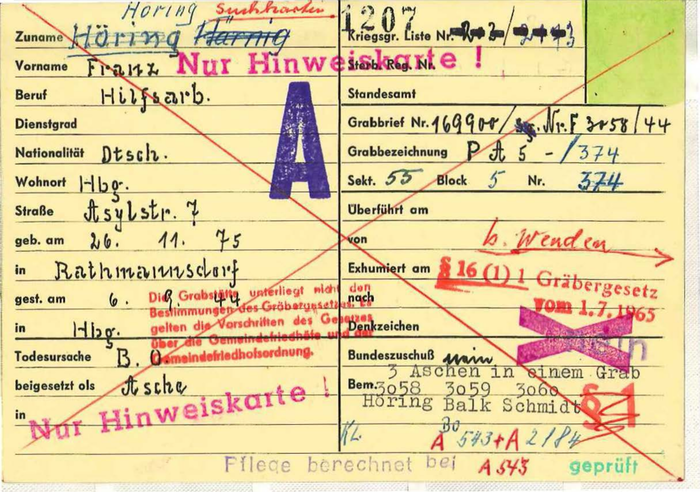 Höring Suchkarten
Zuname Höring Härnig
Vorname Franz
Nur Hinweiskarte !
Beruf Hilfsarb.
Dienstgrad
A
Nationalität Dtsch.
Wohnort Hbg.
Straße Asylstr. 7
geb. am 26. 11. 75
in Rathmannsdorf
gest. am 6. 9. 44
in Hbg.
Die Grabstätte unterliegt nicht den
Bestimmungen des Gräbergesetzes. Es
gelten die Vorschriften des Gesetzes
über die Gemeindefriedhöfe und der
Gemeindefriedhofsordnung.
Todesursache B. O.
beigesetzt als Asche
in
Nur Hinweiskarte !
1207
Kriegsgr. Liste Nr.
Sterb. Reg. Nr.
Standesamt
Grabbrief Nr. 169900/ Nr. F 3058/44
Grabbezeichnung P A 5 - /374
Sekt. 55 Block 5 Nr. 374
Überführt am
von b. Wenden
Exhumiert am § 16 (1) 1 Gräbergesetz
nach vom 1.7.1965
Denkzeichen nein
Bundeszuschuß nein
3 Aschen in einem Grab
Bem. 3058 3059 3060
Höring Balk Schmidt
§ 1
KL. Bo
A 543 + A 2184
Pflege berechnet bei A 543 geprüft